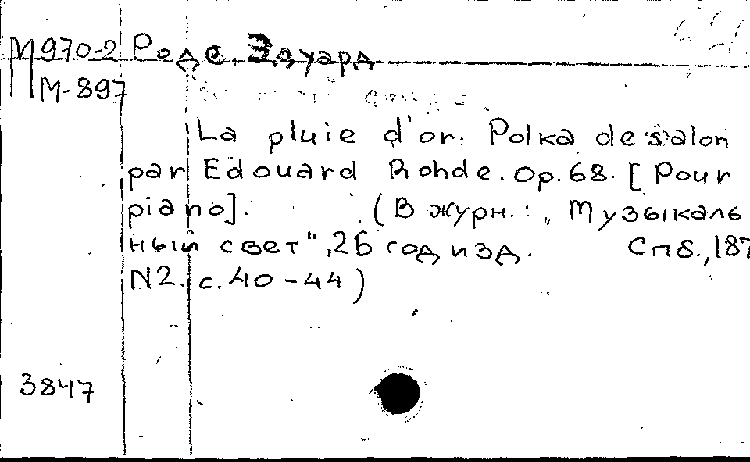 М970-2 Роде, Эдуард
М-897
La pluie d'or. Polka de salon
par Edouard Rohde. Op. 68. [Pour
piano]. (В журн.: „Музыкаль
ный свет", 26 год изд. Спб., 187
N2. с. 40-44)
3847